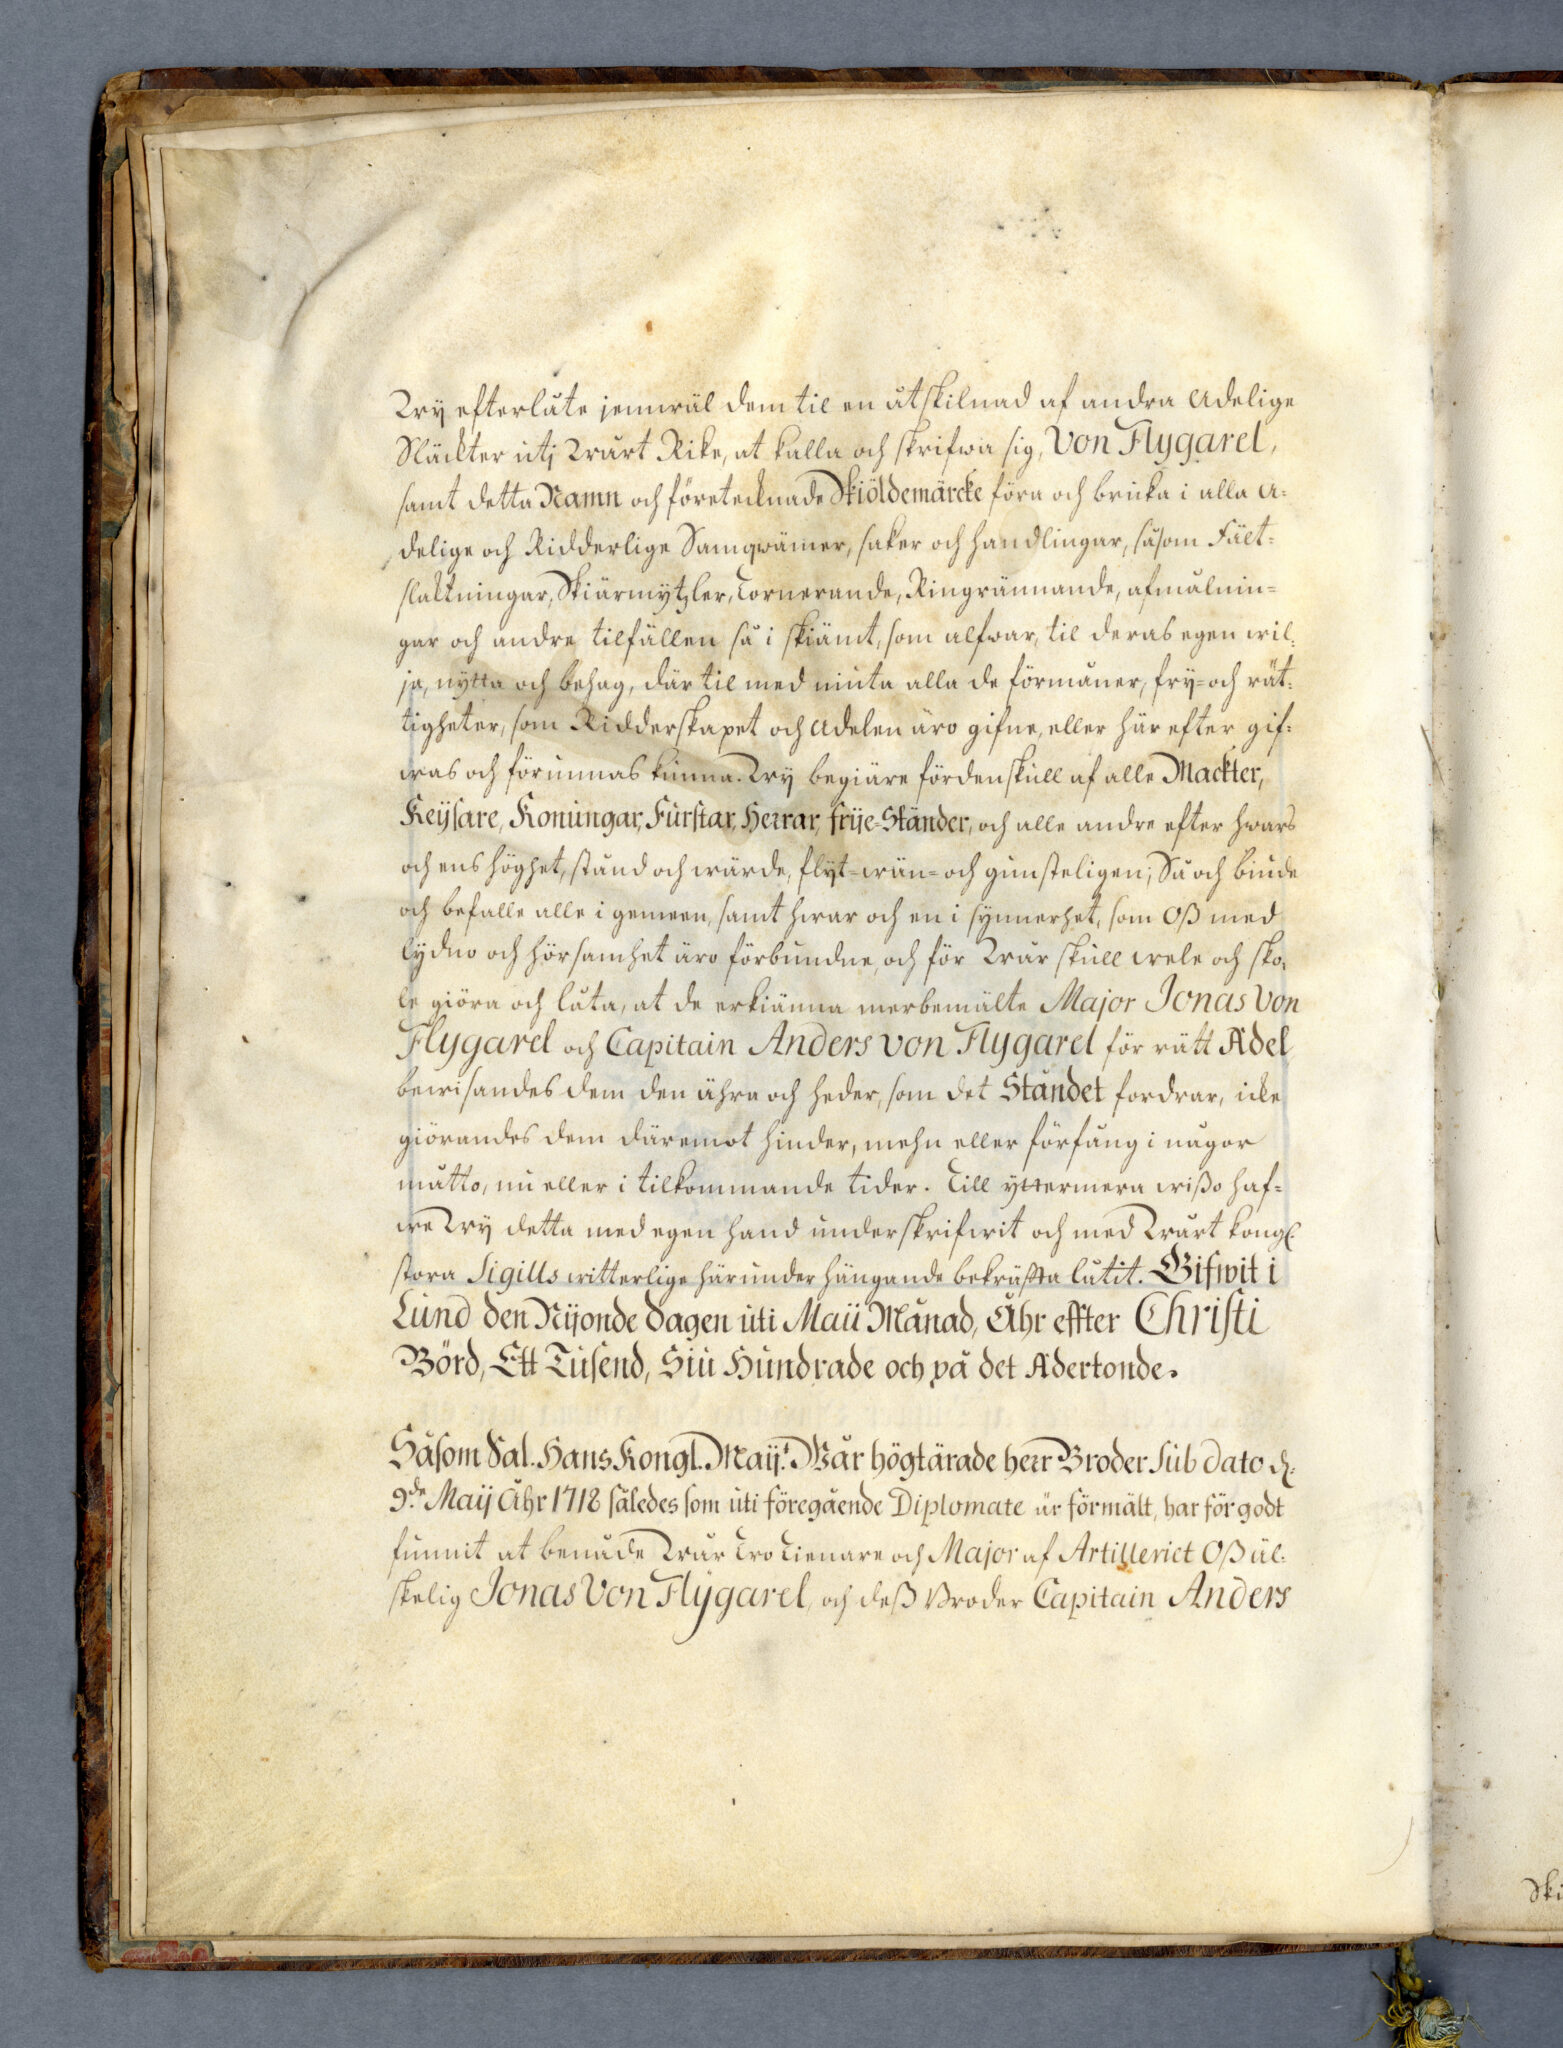 Wÿ efterlåte jemwäl dem til en åtskilnad af andra Adelige
Släckter utj Wårt Rike, at kalla och skrifwa sig, Von Flygarel,
samt detta Namn och företecknade Skiöldemärcke föra och bruka i alla A-
delige och Ridderlige Samqwämer, saker och handlingar, såsom Fält-
slaktningar, Skiärmÿtzler, Tornerande, Ringrännande, afmålnin-
gar och andre tilfällen så i skiämt, som alfwar, til deras egen wil-
ja, nÿtta och behag, där til med niuta alla de förmåner, frÿ- och rät-
tigheter, som Ridderskapet och Adelen äro gifne, eller här efter gif-
was och förunnas kunna. Wÿ begiäre fördenskull af alle Mackter,
Keÿsare, Konungar, Furstar, Herrar, frije-Ständer, och alle andre efter hwars
och ens höghet, stånd och wärde, flÿt- wän- och gunsteligen; Så och biude
och befalle alle i gemeen, samt hwar och en i sÿnnerhet, som Oß med
lÿdno och hörsamhet äro förbundne, och för Wår skull wele och sko-
le giöra och låta, at de erkiänna merbemälte Major Jonas Von
Flygarel och Capitain Anders von Flygarel för rätt Adel
bewisandes dem den ähra och heder, som det Ståndet fordrar, icke
giörandes dem däremot hinder, mehn eller förfång i någor
måtto, nu eller i tilkommande tider. Till ÿttermera wißo haf-
we Wÿ detta med egen hand underskrifwit och med Wårt kongl.
stora Sigills witterlige härunder hängande bekräffta låtit. Gifwit i
Lund den Nijonde dagen uti Maii Månad, Åhr effter Christi
Börd, Ett Tusend, Siu Hundrade och på det Adertonde.
Såsom Sal. Hans Kongl. Maij:t Wår högtärade herr Broder sub dato d:
9:de Maij Åhr 1718 således som uti föregående Diplomate är förmält, har för godt
funnit at benåde Wår Tro Tienare och Major af Artilleriet Oß äl-
skelig Jonas Von Flÿgarel, och deß Broder Capitain Anders
Ski